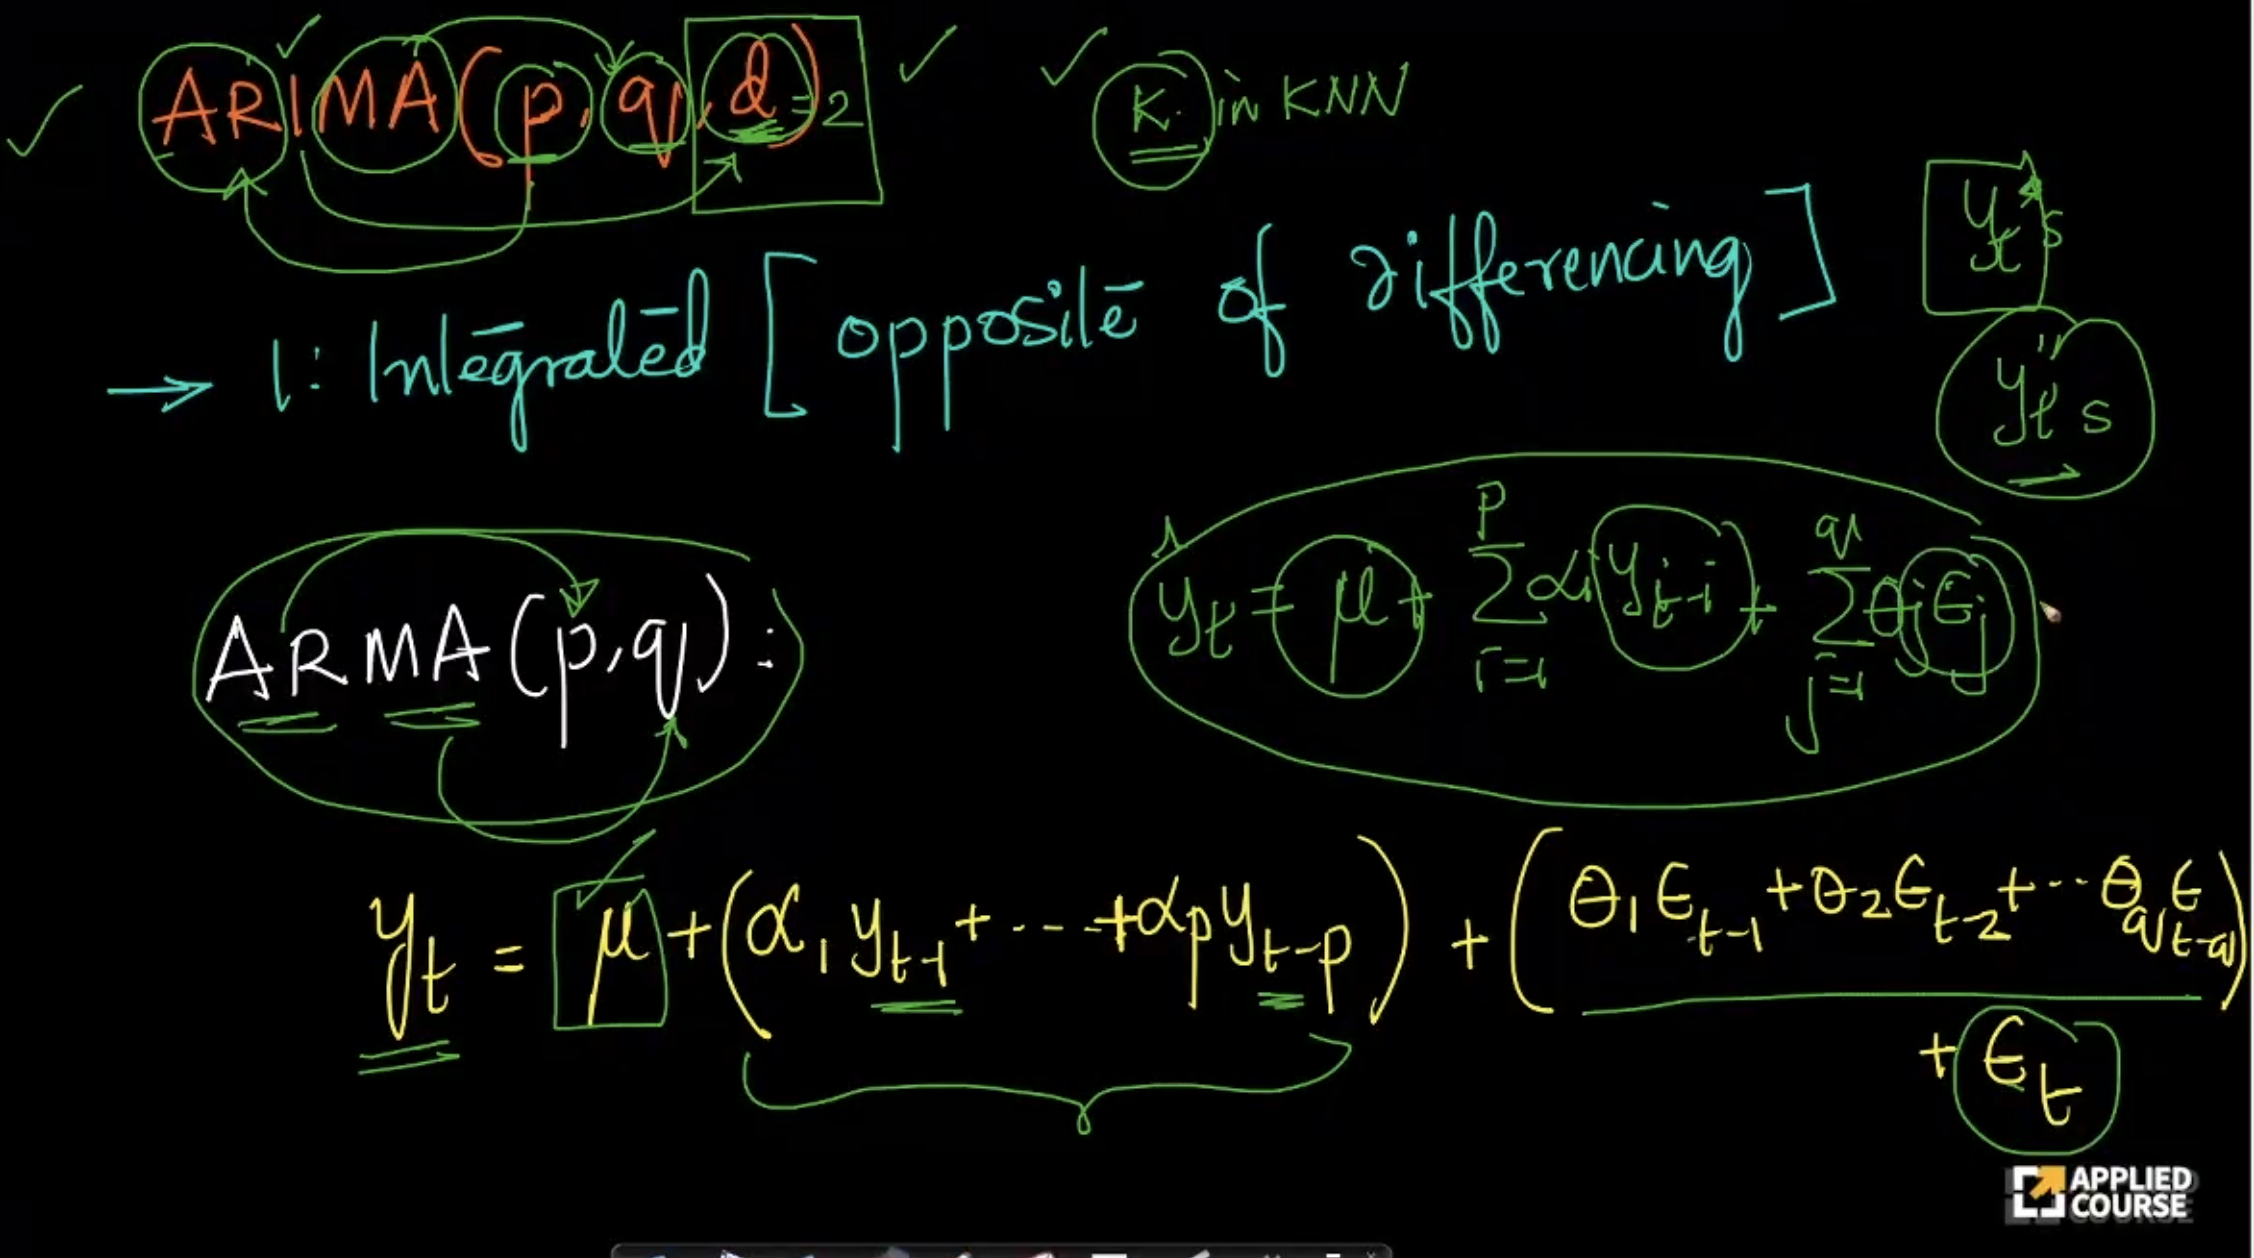 ARIMA(p,q,d)=2
K in KNN
y_t s
I: Integrated [opposite of differencing]
y''_t s
ARMA(p,q):
ŷ_t = μ + Σ_{i=1}^{p} α_i y_{t-i} + Σ_{j=1}^{q} θ_j ϵ_j
y_t = μ + (α_1 y_{t-1} + --- + α_p y_{t-p}) + (θ_1 ϵ_{t-1} + θ_2 ϵ_{t-2} + ·· θ_q ϵ_{t-q})
+ ϵ_t
APPLIED
COURSE